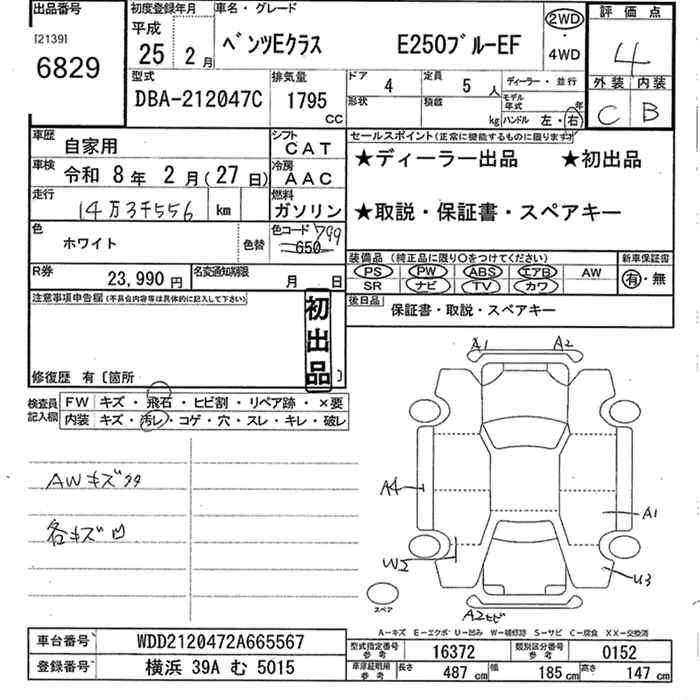 出品番号
[2139]
6829
初度登録年月
平成
25 2月
車名・グレード
ベンツEクラス E250ブルーEF
2WD
・
4WD
評価点
4
外装 内装
C B
型式
DBA-212047C
排気量
1795 CC
ドア 4
定員 5人
ディーラー・並行
形状
積載 kg
モデル年式 年
ハンドル 左・右
車歴
自家用
シフト
CAT
車検
令和 8年 2月(27日)
冷房
AAC
走行
14万3千556 km
燃料
ガソリン
セールスポイント(正常に機能するものに限ります)
★ディーラー出品 ★初出品
★取説・保証書・スペアキー
色
ホワイト
色替
色コード 799
650
装備品(純正品に限り○をつけてください)
PS PW ABS エアB AW
SR ナビ TV カワ
新車保証書
有・無
R券
23,990円
名変通知期限
月 日
後日品
保証書・取説・スペアキー
注意事項申告欄(不具合内容等は具体的に記入して下さい)
初出品
修復歴 有〔箇所 〕
検査員記入欄
FW キズ・飛石・ヒビ割・リペア跡・×要
内装 キズ・汚レ・コゲ・穴・スレ・キレ・破レ
AWキズ
各キズ凹
A1 A2
A4
A1
U3
スペア
A2ヒビ
A-キズ E-エクボ U-凹み W-補修跡 S-サビ C-腐食 XX-交換済
車台番号
WDD2120472A665567
登録番号
横浜 39A む 5015
型式指定番号
参考
16372
類別区分番号
参考
0152
車庫証明用
参考
長さ 487 cm
幅 185 cm
高さ 147 cm